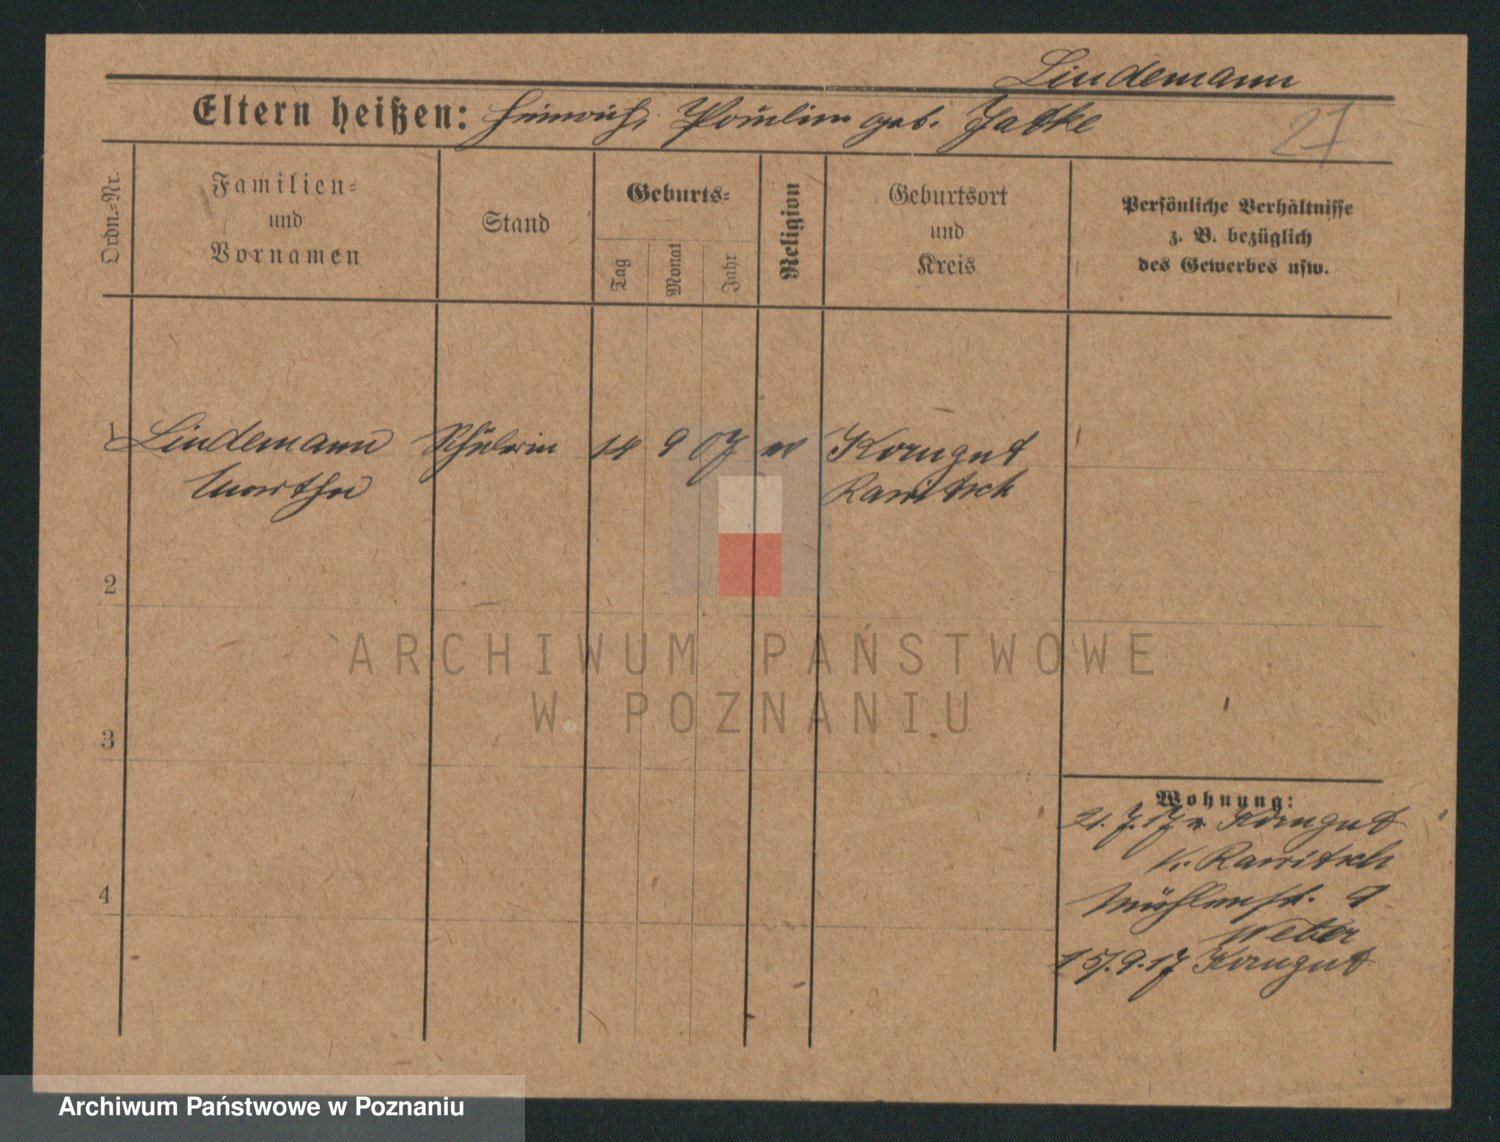 Lindemann
Eltern heißen: Heinrich, Paulina geb. Jatke
27
Ordn.-Nr.
Familien-
und
Vornamen
Stand
Geburts-
Tag
Monat
Jahr
Religion
Geburtsort
und
Kreis
Persönliche Verhältnisse
z. B. bezüglich
des Gewerbes usw.
1 Lindemann Schülerin 14 9 07 Korngut
Martha Rawitsch
2
3
4
Wohnung:
21.7.17 v. Korngut
K. Rawitsch
Mühlenstr. 9
Weber
15/.9.17 Korngut
ARCHIWUM PAŃSTWOWE
W POZNANIU
Archiwum Państwowe w Poznaniu